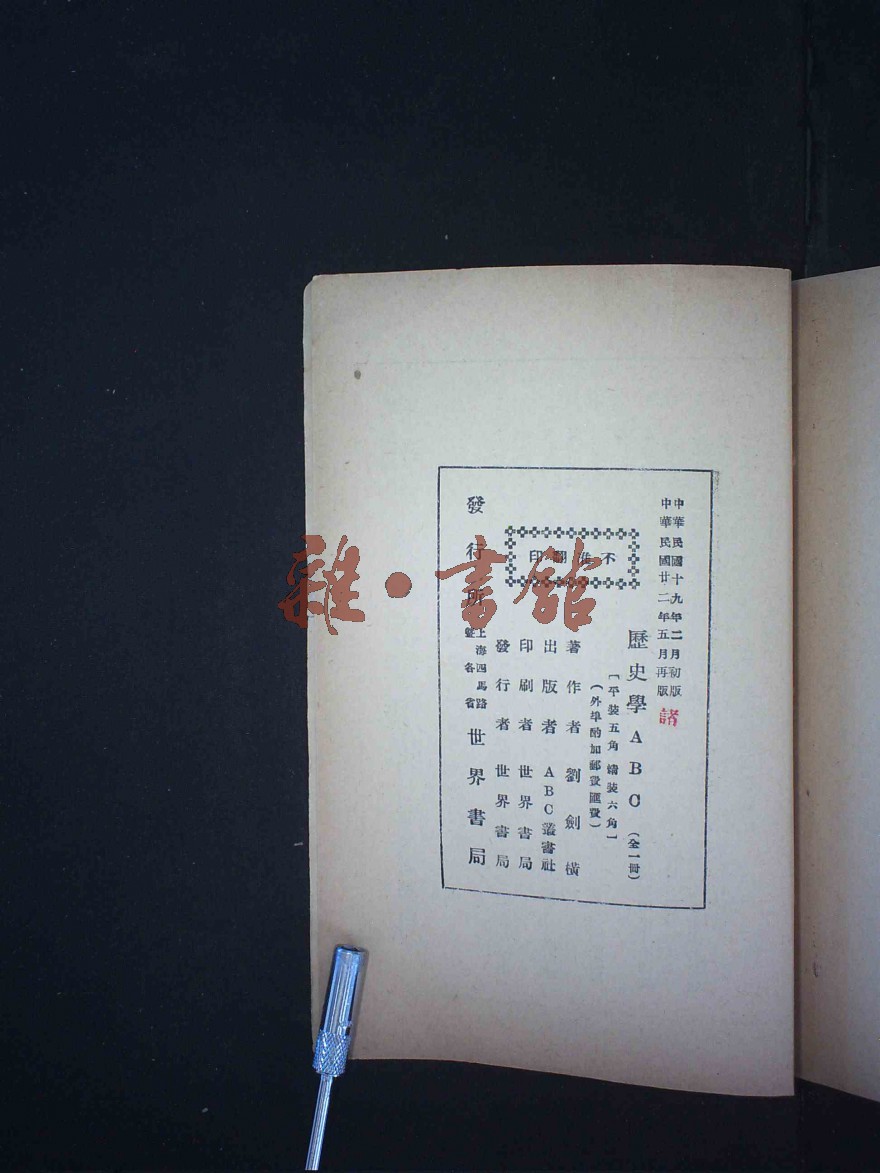 中華民國十九年二月初版
中華民國廿二年五月再版
諸
歷史學ABC（全一冊）
〔平裝五角 精裝六角〕
（外埠酌加郵費匯費）
不准翻印
著作者 劉劍橫
出版者 ABC叢書社
印刷者 世界書局
發行者 世界書局
發行所 上海四馬路 暨各省 世界書局
雜·書館